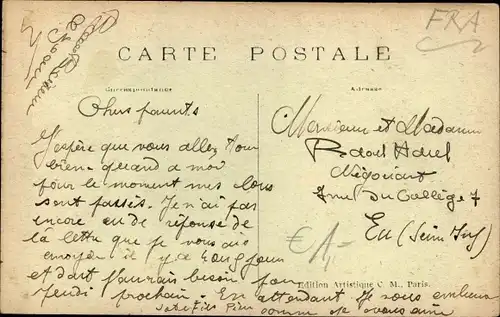 FRA
CARTE POSTALE
Correspondance
Adresse
Chers parents
J'espère que vous allez tous
bien. quand a moi
pour le moment mes
sont passés. Je n'ai pas
encore eu de réponse de
la lettre que je vous ai
envoyer il y a long jours
et dont j'aurais besoin pour
jeudi prochain. En attendant je vous embrasse
comme je vous aime
Monsieur et Madame
Négociant
rue du Collège 7
Eu (Seine Inf)
€ 1,-
Edition Artistique C. M., Paris.